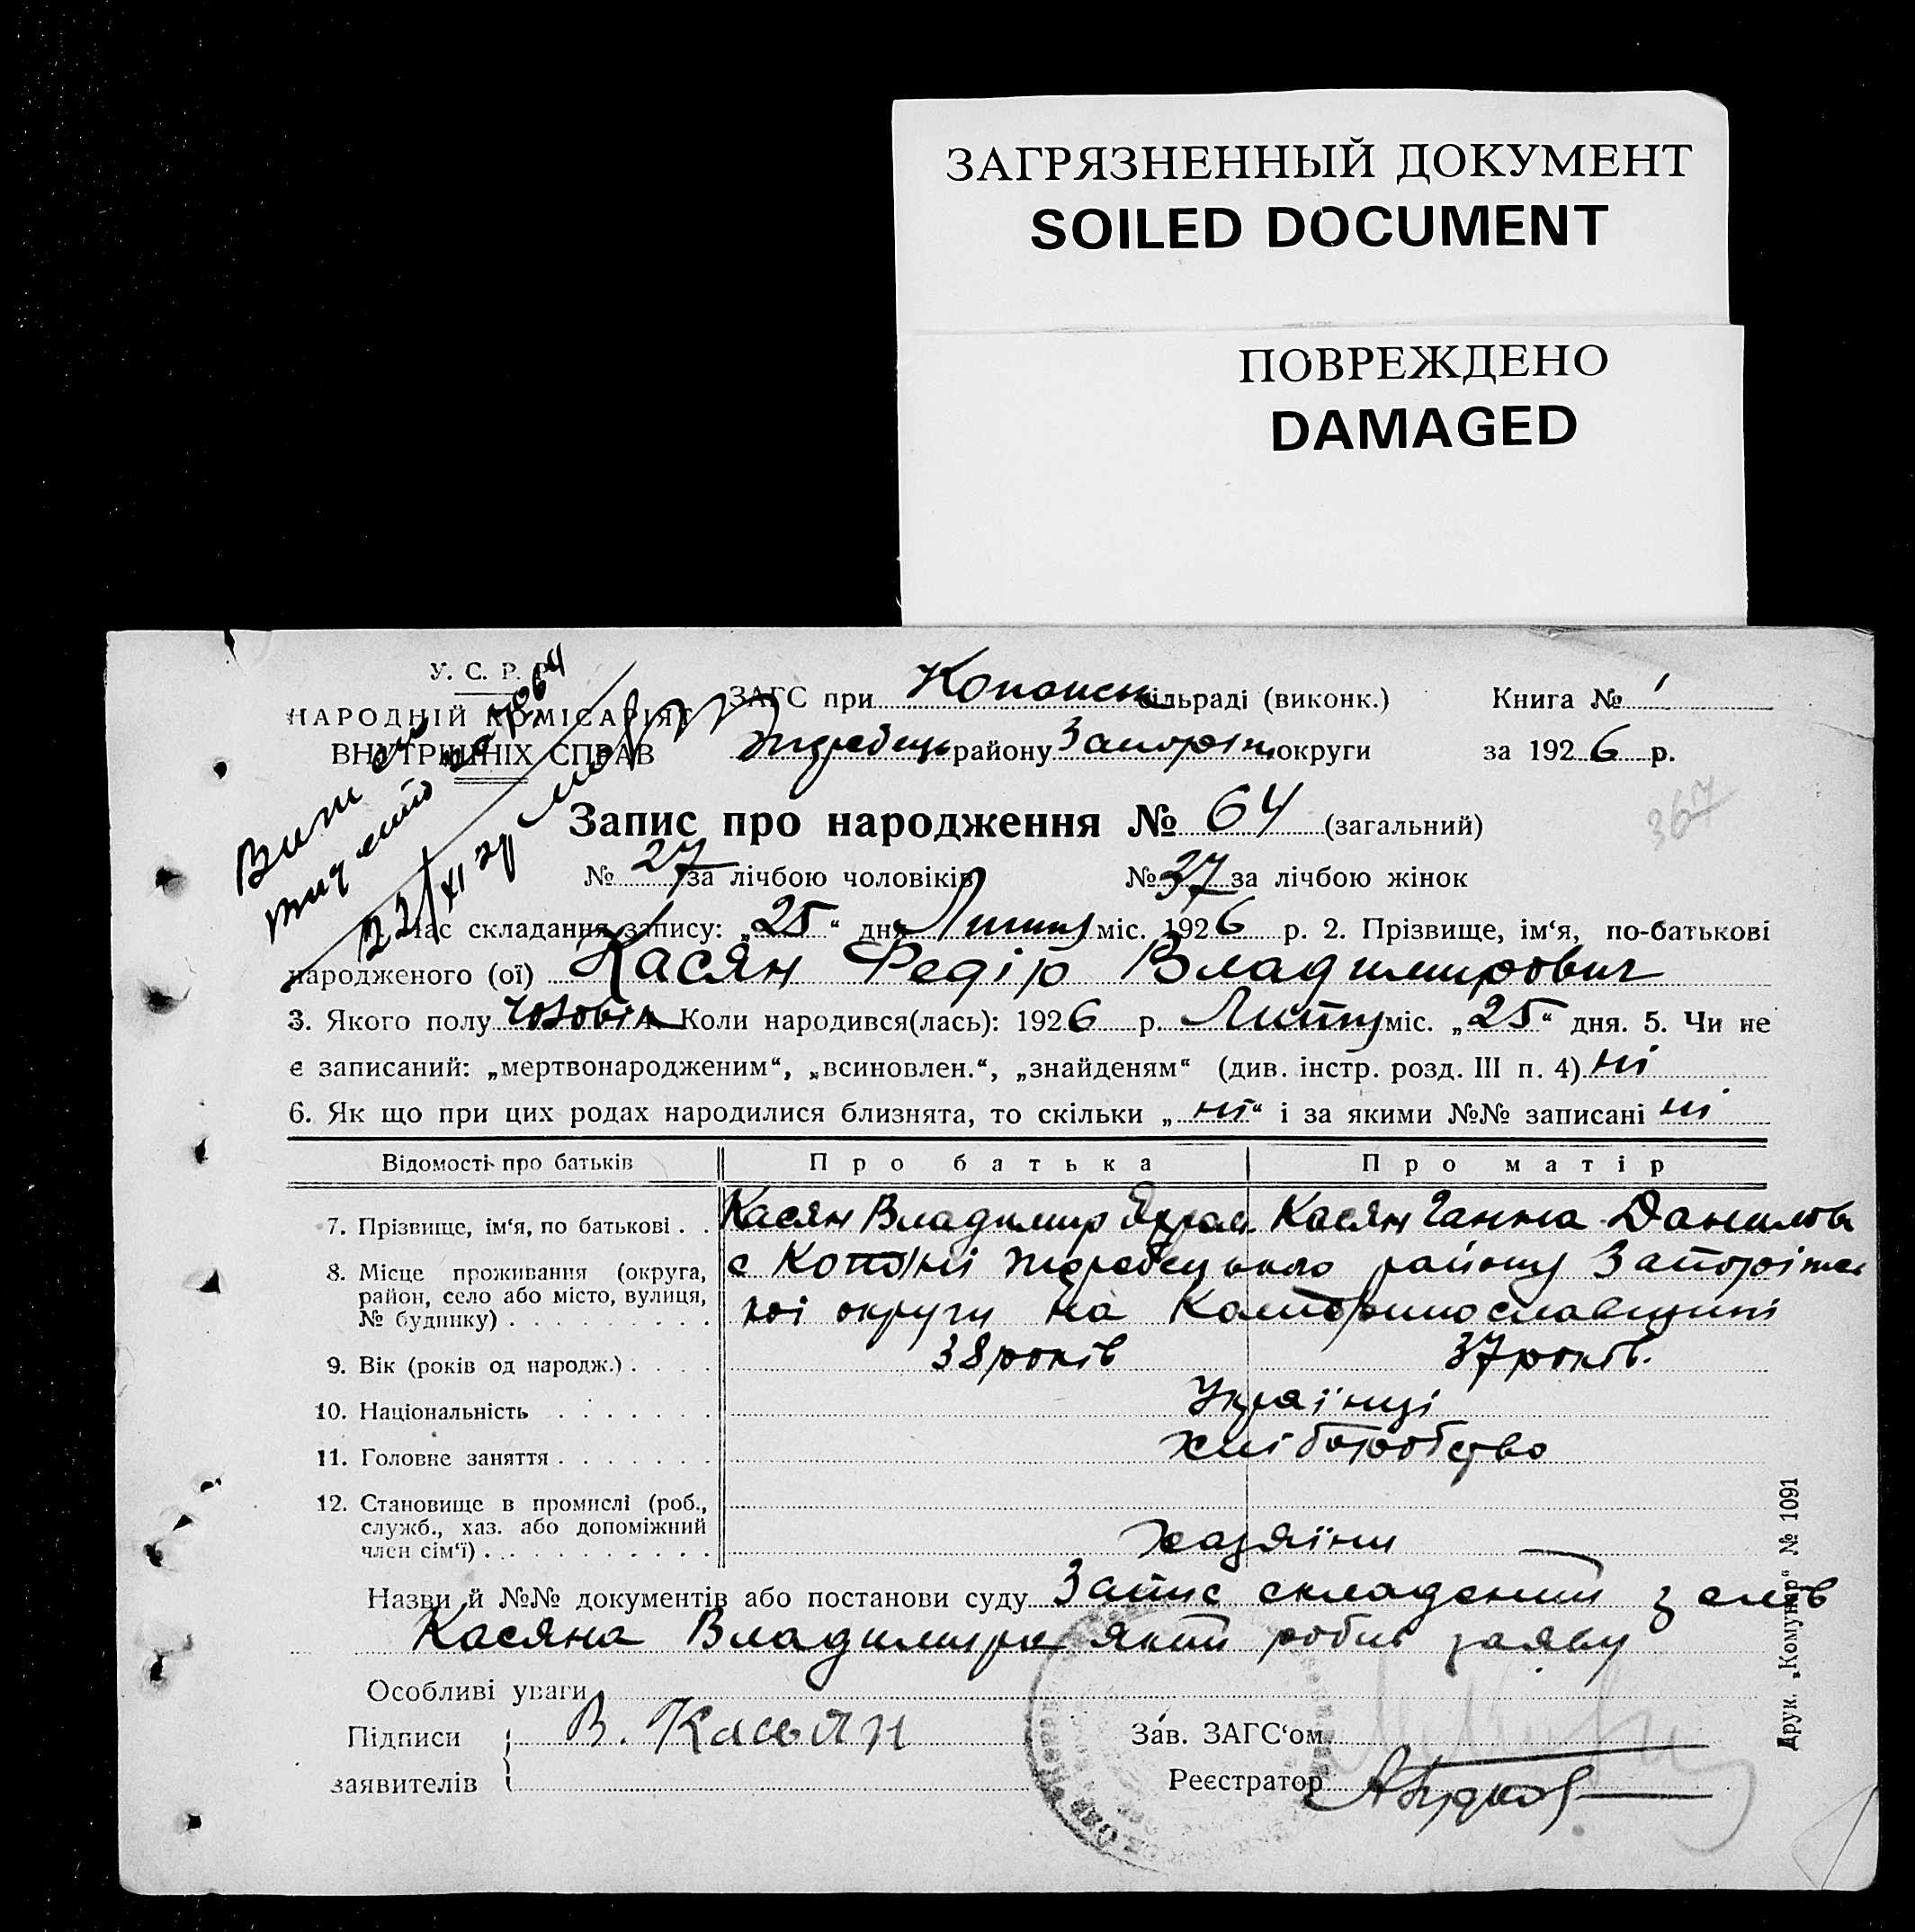 ЗАГРЯЗНЕННЫЙ ДОКУМЕНТ
SOILED DOCUMENT
ПОВРЕЖДЕНО
DAMAGED
У. С. Р. Р.
НАРОДНІЙ КОМІСАРІЯТ
ВНУТРІШНІХ СПРАВ
ЗАГС при Копанськ сільраді (виконк.) Книга № 1
Жеребець району Запоріж округи за 1926 р.
367
Запис про народження № 64 (загальний)
№ 27 за лічбою чоловіків № 37 за лічбою жінок
1. Час складання запису: „25“ дня міс. 1926 р. 2. Прізвище, ім‘я, по-батькові
народженого (ої) Касян Федір Владимирович
3. Якого полу Чоловік Коли народився(лась): 1926 р. міс. „25“ дня. 5. Чи не
є записаний: „мертвонародженим“, „всиновлен.“, „знайденям“ (див. інстр. розд. III п. 4) ні
6. Як що при цих родах народилися близнята, то скільки „ні“ і за якими №№ записані ні
Відомості про батьків Про батька Про матір
7. Прізвище, ім‘я, по батькові . . Касян Владимир Касян Ганна Данилов
8. Місце проживання (округа, район, село або місто, вулиця, № будинку) . . . . . . . . . с Копані Жеребецького району Запоріжсь
кої округи на Катеринославщині
9. Вік (років од народж.) . . . . 38 років 37 років.
10. Національність . . . . . . . Українці
11. Головне заняття . . . . . . . хліборобство
12. Становище в промислі (роб., служб., хаз. або допоміжний член сім‘ї) . . . . . . . . . . хазяїни
Назви й №№ документів або постанови суду Запис складений з слів
Касяна Владимира який робив заяву
Особливі уваги
Підписи заявителів В. Касьян
Зав. ЗАГС‘ом
Реєстратор
Друк. „Комунар“ № 1091